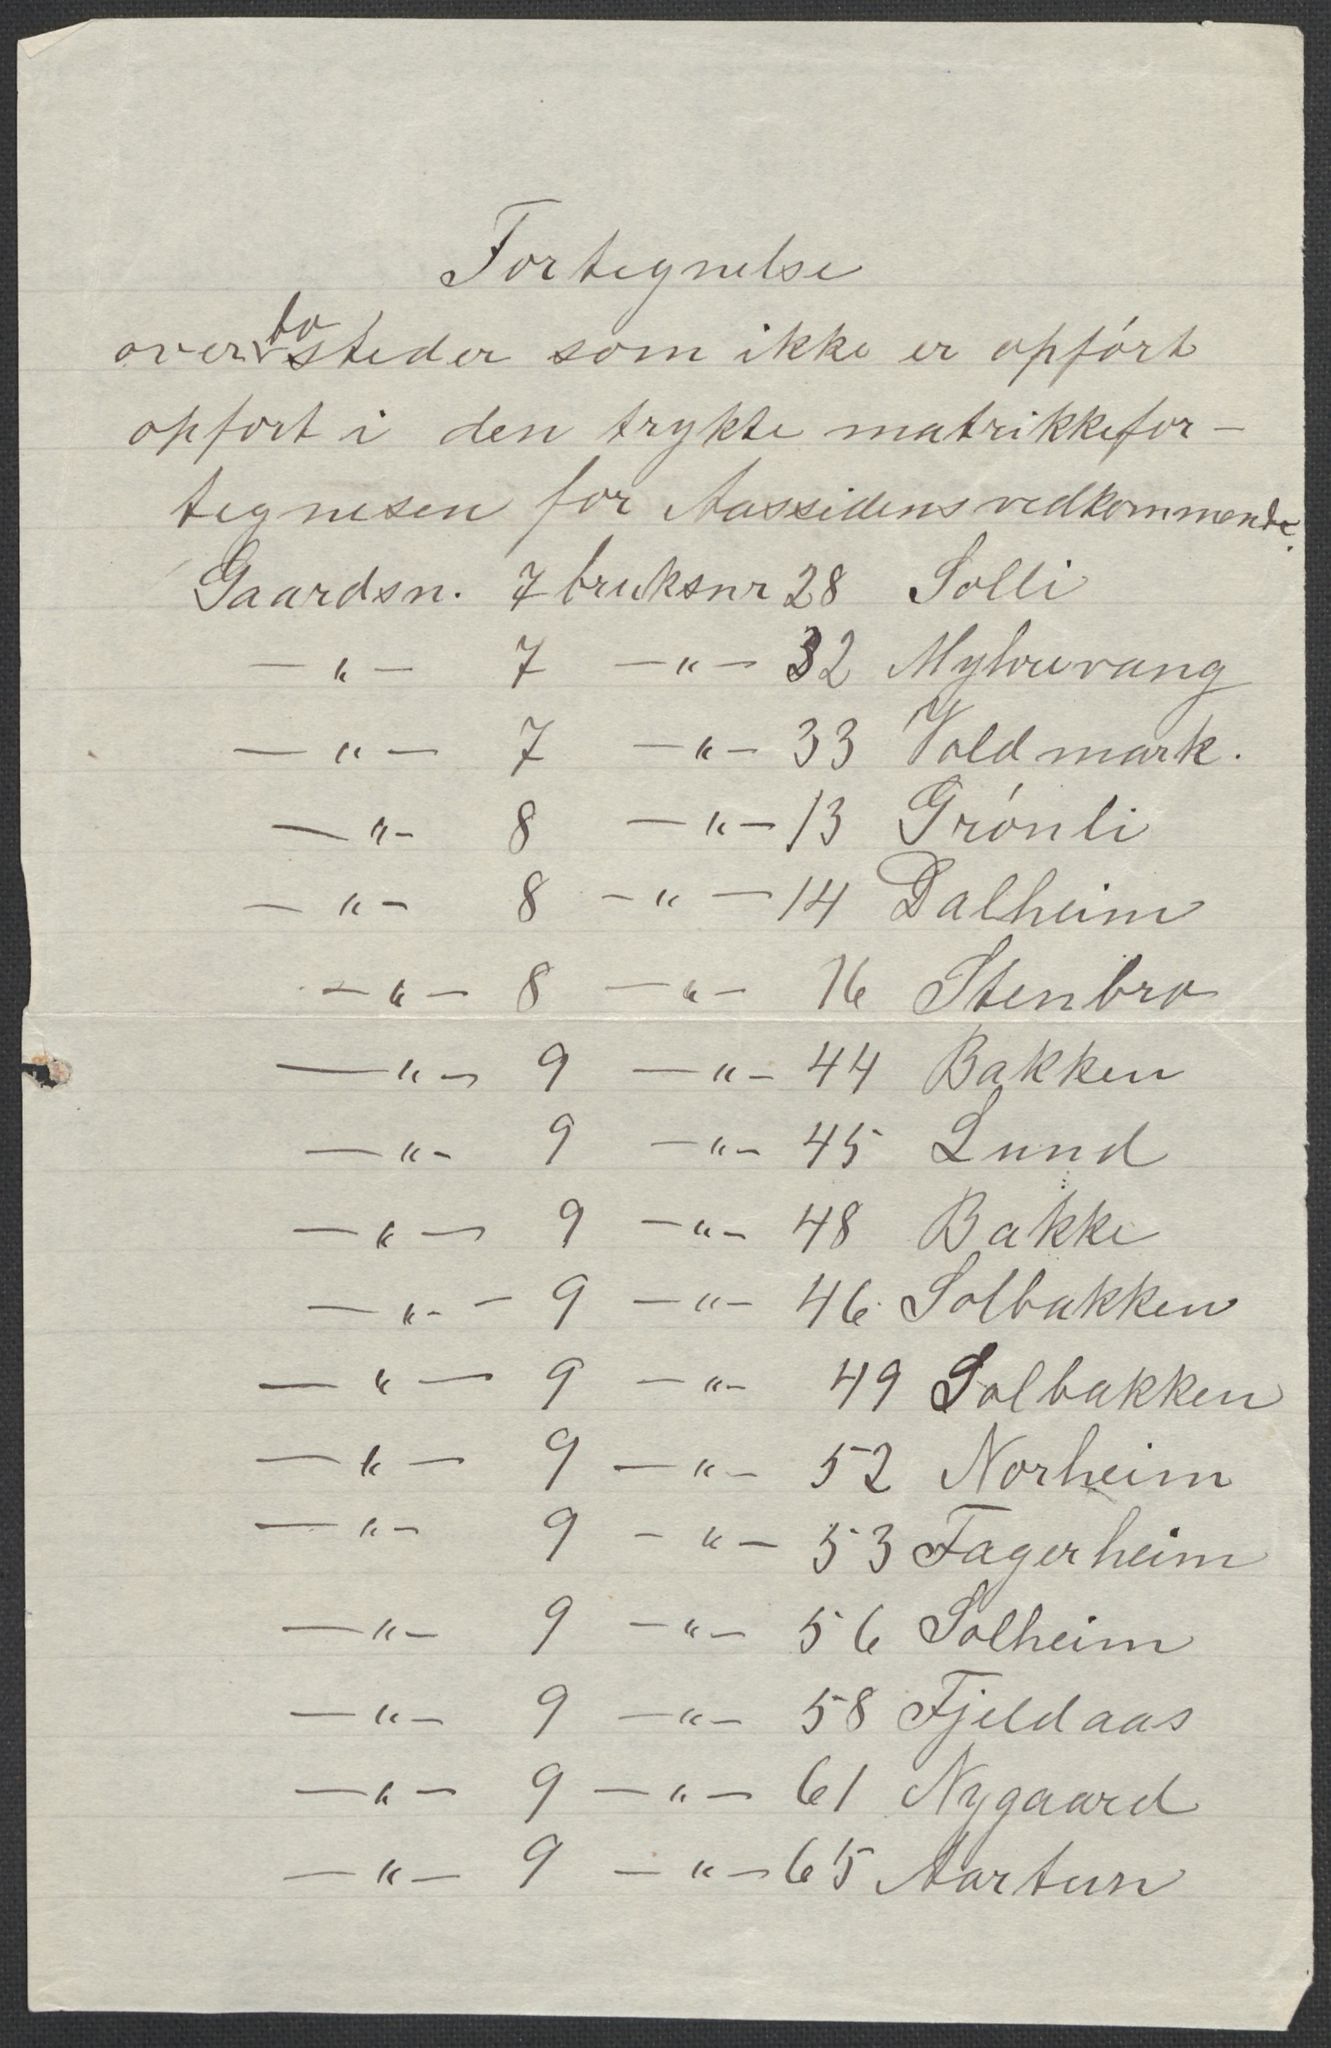 Fortegnelse
over bosteder som ikke er opført
opfort i den trykte matrikkefor-
tegnesen for Aassidens vedkommende.
Gaardsn. 7 bruksnr 28 Solli
—"— 7 —"— 32
—"— 7 —"— 33 Voldmark.
—"— 8 —"— 13 Grønli
—"— 8 —"— 14 Dalheim
—"— 8 —"— 16 Stenbro
—"— 9 —"— 44 Bakken
—"— 9 —"— 45 Lund
—"— 9 —"— 48 Bakke
—"— 9 —"— 46 Solbakken
—"— 9 —"— 49 Solbakken
—"— 9 —"— 52 Norheim
—"— 9 —"— 53 Fagerheim
—"— 9 —"— 56 Solheim
—"— 9 —"— 58 Fjeldaas
—"— 9 —"— 61 Nygaard
—"— 9 —"— 65 Aartun